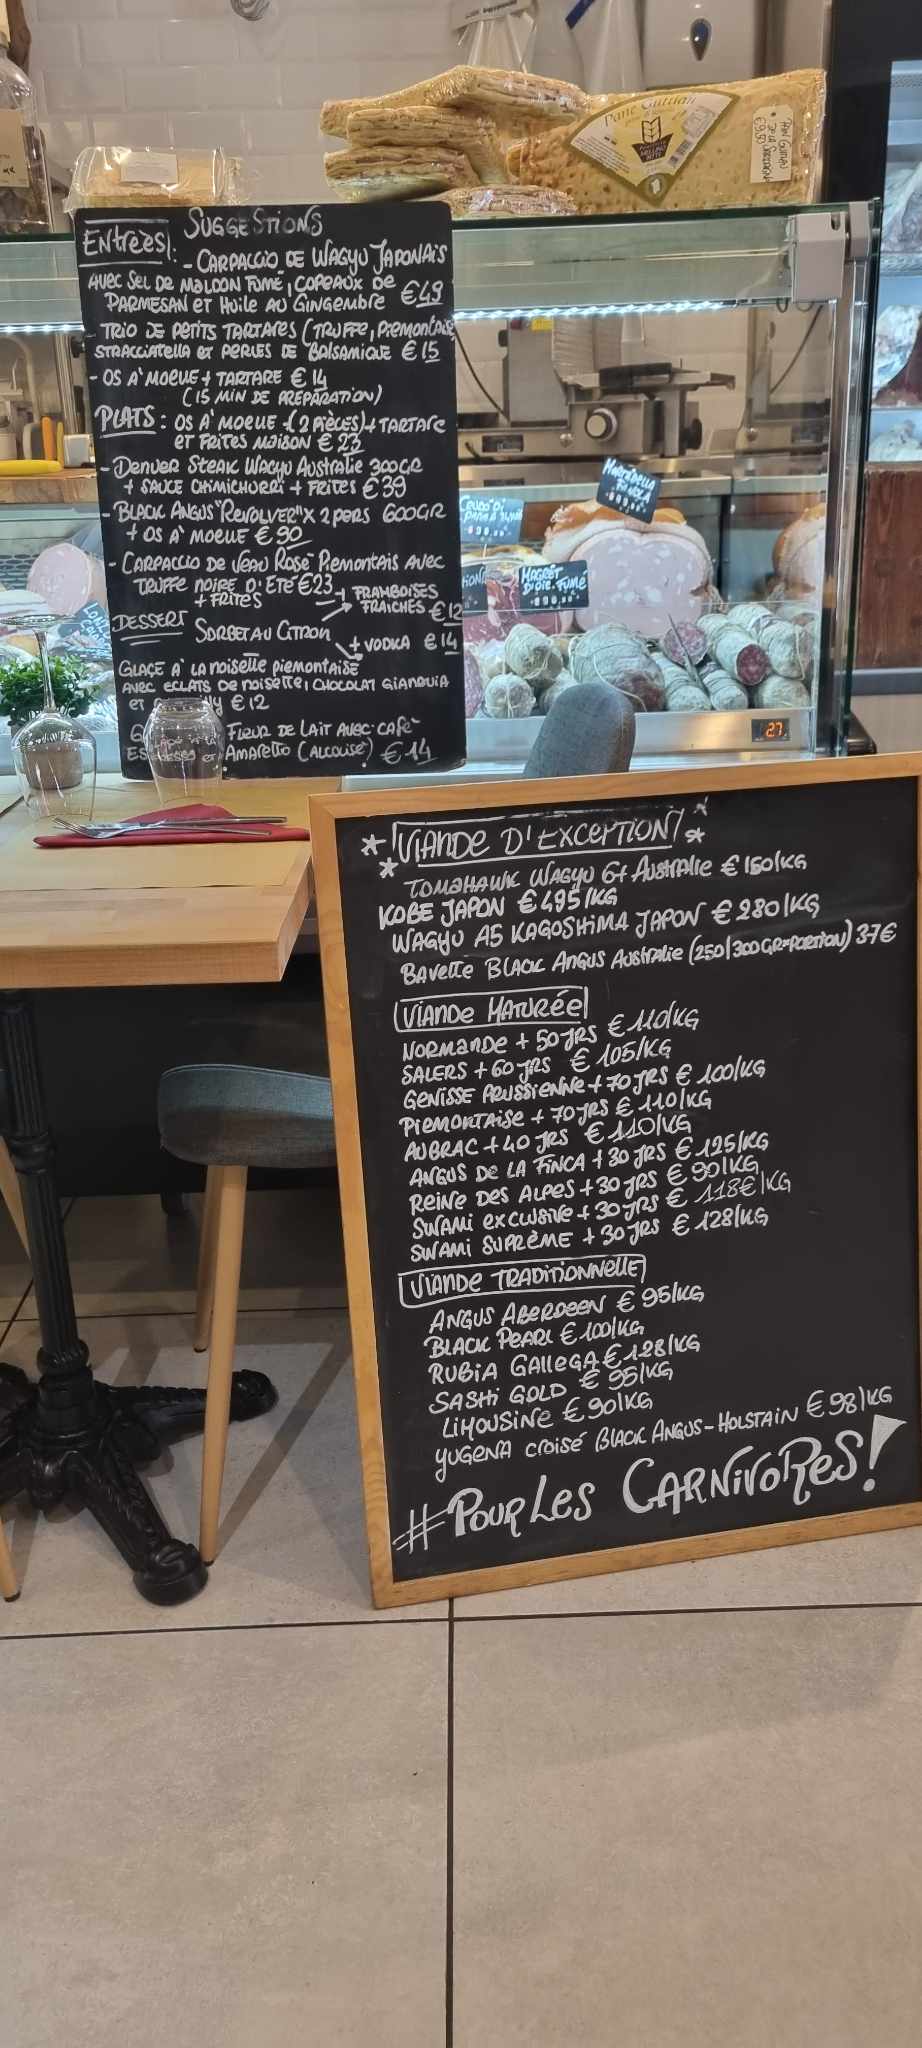 Pane Guttiau
SUGGESTIONS
ENTRÉES:
- CARPACCIO DE WAGYU JAPONAIS
AVEC SEL DE MALDON FUMÉ, COPEAUX DE
PARMESAN ET HUILE AU GINGEMBRE €49
TRIO DE PETITS TARTARES (TRUFFE, PIEMONTAISE,
STRACCIATELLA ET PERLES DE BALSAMIQUE €15
- OS A' MOELLE + TARTARE €14
(15 MIN DE PRÉPARATION)
PLATS: OS A' MOELLE (2 PIÈCES) + TARTARE
ET FRITES MAISON €23
- DENVER STEAK WAGYU AUSTRALIE 300GR
+ SAUCE CHIMICHURRI + FRITES €39
- BLACK ANGUS "REVOLVER" X 2 PERS 600GR
+ OS A' MOELLE €90
- CARPACCIO DE VEAU ROSE PIEMONTAIS AVEC
TRUFFE NOIRE D'ETE €23
+ FRITES
DESSERT
SORBET AU CITRON
+ FRAMBOISES
FRAICHES €12
+ VODKA €14
GLACE A' LA NOISETTE PIEMONTAISE
AVEC ECLATS DE NOISETTE, CHOCOLAT GIANDUIA
ET €12
FLEUR DE LAIT AVEC CAFÉ
ET AMARETTO (ALCOLISÉ) €14
MORTADELLA
MAGRET
D'OIE FUMÉ
27
* VIANDE D'EXCEPTION *
TOMAHAWK WAGYU 6+ AUSTRALIE €150/KG
KOBE JAPON €495/KG
WAGYU A5 KAGOSHIMA JAPON €280/KG
BAVETTE BLACK ANGUS AUSTRALIE (250/300GR=PORTION) 37€
VIANDE MATURÉE
NORMANDE + 50 JRS €110/KG
SALERS + 60 JRS €105/KG
GENISSE PRUSSIENNE + 70 JRS €100/KG
PIEMONTAISE + 70 JRS €110/KG
AUBRAC + 40 JRS €110/KG
ANGUS DE LA FINCA + 30 JRS €125/KG
REINE DES ALPES + 30 JRS €90/KG
SWAMI EXCLUSIVE + 30 JRS € 118€/KG
SWAMI SUPRÈME + 30 JRS €128/KG
VIANDE TRADITIONNELLE
ANGUS ABERDEEN €95/KG
BLACK PEARL €100/KG
RUBIA GALLEGA €128/KG
SASHI GOLD €95/KG
LIMOUSINE €90/KG
YUGENA CROISÉ BLACK ANGUS-HOLSTAIN €98/KG
#POUR LES CARNIVORES!